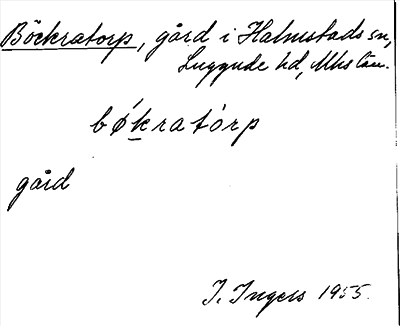 Böckratorp, gård i Halmstads sn,
Luggude hd, Mhs län.
bǿkratórp
gård
I. Ingers 1955.